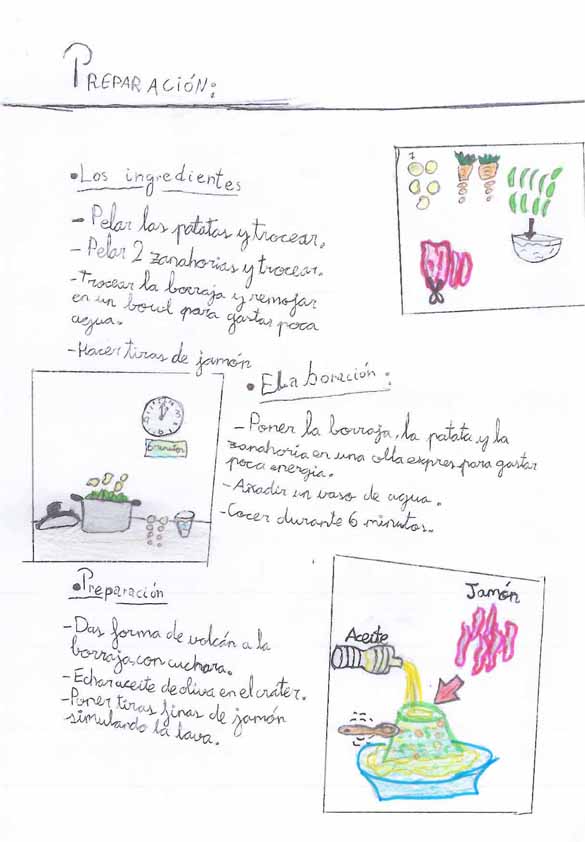 PREPARACIÓN:
• Los ingredientes
1
- Pelar las patatas y trocear.
- Pelar 2 zanahorias y trocear.
- Trocear la borraja y remojar
en un bowl para gastar poca
agua.
- Hacer tiras de jamón
• Elaboración:
6 minutos
- Poner la borraja, la patata y la
zanahoria en una olla expres para gastar
poca energia.
- Añadir un vaso de agua.
- Cocer durante 6 minutos.
• Preparación
- Das forma de volcán a la
borraja, con cuchara.
- Echar aceite de oliva en el cráter.
- Poner tiras finas de jamón
simulando la lava.
Jamón
Aceite